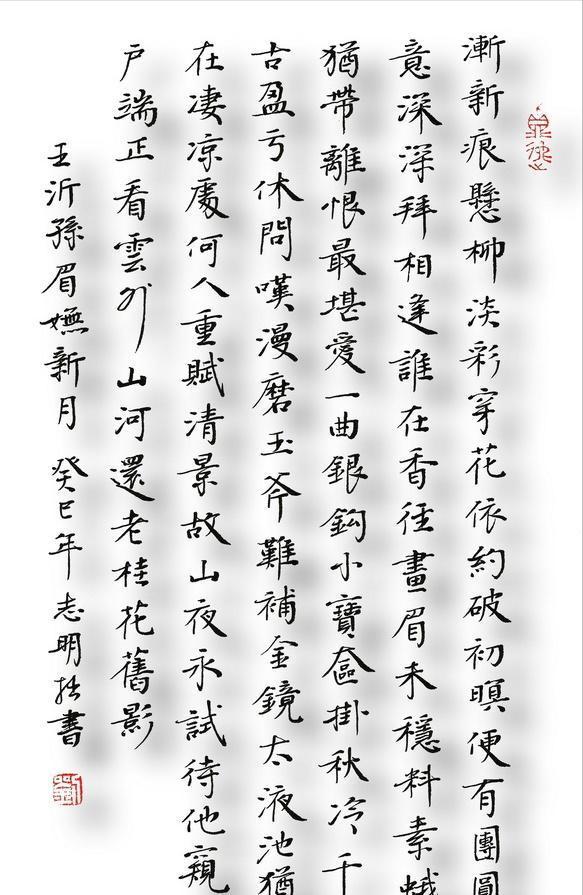 漸新痕懸柳淡彩穿花依約破初暝便有團圓
意深深拜相逢誰在香徑畫眉未穩料素娥
猶帶離恨最堪愛一曲銀鈎小寶奩掛秋冷千
古盈亏休問嘆漫磨玉斧難補金鏡太液池猶
在凄凉處何人重賦清景故山夜永試待他窺
户端正看雲外山河還老桂花舊影
王沂孫眉嫵新月 癸巳年志明拙書